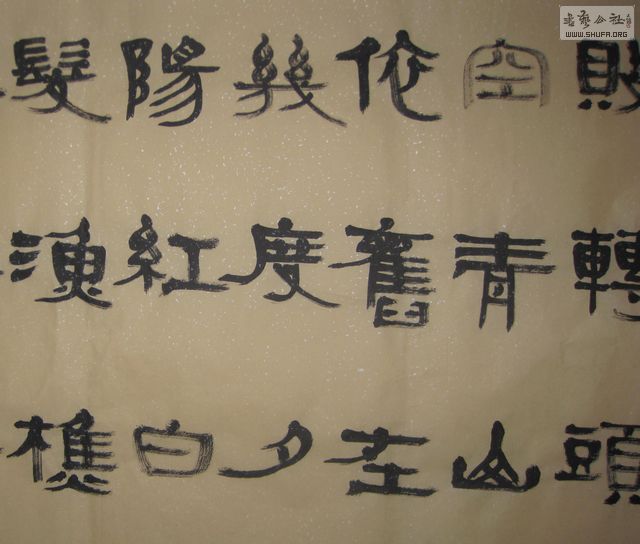 敗轉頭
空青山
依舊在
幾度夕
陽紅白
髮漁樵
書藝公社
WWW.SHUFA.ORG